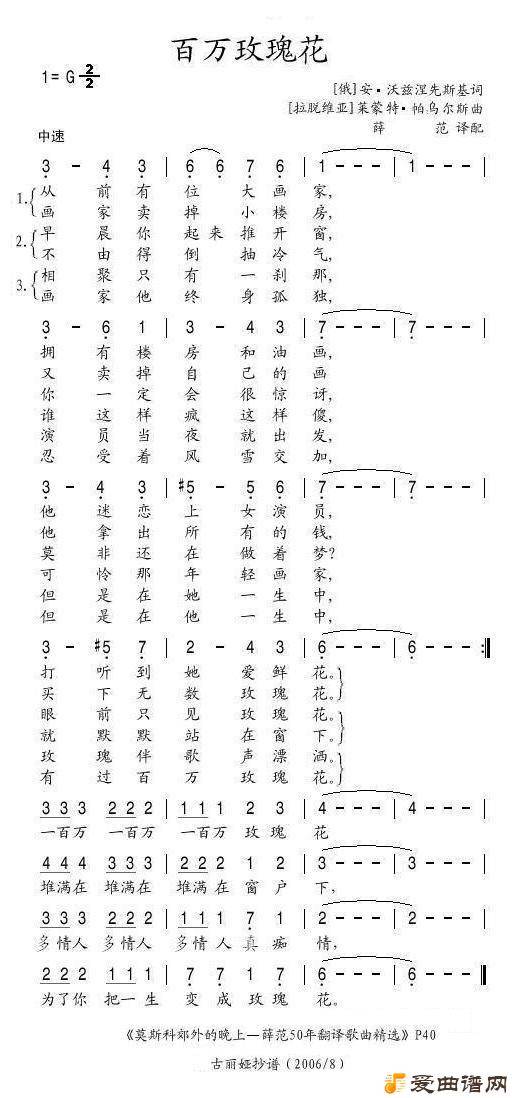 百万玫瑰花
1= G 2/2
[俄]安·沃兹涅先斯基词
[拉脱维亚]莱蒙特·帕乌尔斯曲
薛 范 译配
中速
3 - 4 3 | 6 6 7 6 | 1 - - - | 1 - - - |
1. 从 前 有 位 大 画 家,
画 家 卖 掉 小 楼 房,
2. 早 晨 你 起 来 推 开 窗,
不 由 得 倒 抽 冷 气,
3. 相 聚 只 有 一 刹 那,
画 家 他 终 身 孤 独,
3 - 6 1 | 3 - 4 3 | 7 - - - | 7 - - - |
拥 有 楼 房 和 油 画,
又 卖 掉 自 己 的 画
你 一 定 会 很 惊 讶,
谁 这 样 疯 这 样 傻,
演 员 当 夜 就 出 发,
忍 受 着 风 雪 交 加,
3 - 4 3 | #5 - 5 6 | 7 - - - | 7 - - - |
他 迷 恋 上 女 演 员,
他 拿 出 所 有 的 钱,
莫 非 还 在 做 着 梦?
可 怜 那 年 轻 画 家,
但 是 在 她 一 生 中,
但 是 在 他 一 生 中,
3 - #5 7 | 2 - 4 3 | 6 - - - | 6 - - - :‖
打 听 到 她 爱 鲜 花。
买 下 无 数 玫 瑰 花。
眼 前 只 见 玫 瑰 花。
就 默 默 站 在 窗 下。
玫 瑰 伴 歌 声 漂 洒。
有 过 百 万 玫 瑰 花。
3 3 3 2 2 2 | 1 1 1 2 3 | 4 - - - | 4 - - - |
一百万 一百万 一百万 玫 瑰 花
4 4 4 3 3 3 | 2 2 2 1 2 | 3 - - - | 3 - - - |
堆满在 堆满在 堆满在 窗 户 下,
3 3 3 2 2 2 | 1 1 1 7 1 | 2 - - - | 2 - - - |
多情人 多情人 多情人 真 痴 情,
2 2 2 1 1 1 | 7 7 1 7 | 6 - - - | 6 - - - ‖
为了你 把一生 变 成 玫 瑰 花。
《莫斯科郊外的晚上—薛范50年翻译歌曲精选》P40
古丽娅抄谱(2006/8)
爱曲谱网